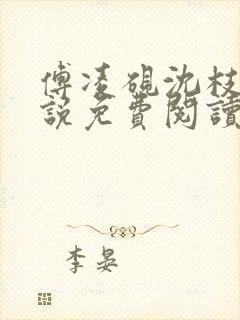 傅凌硯沈枝
說免費閱讀
李晏